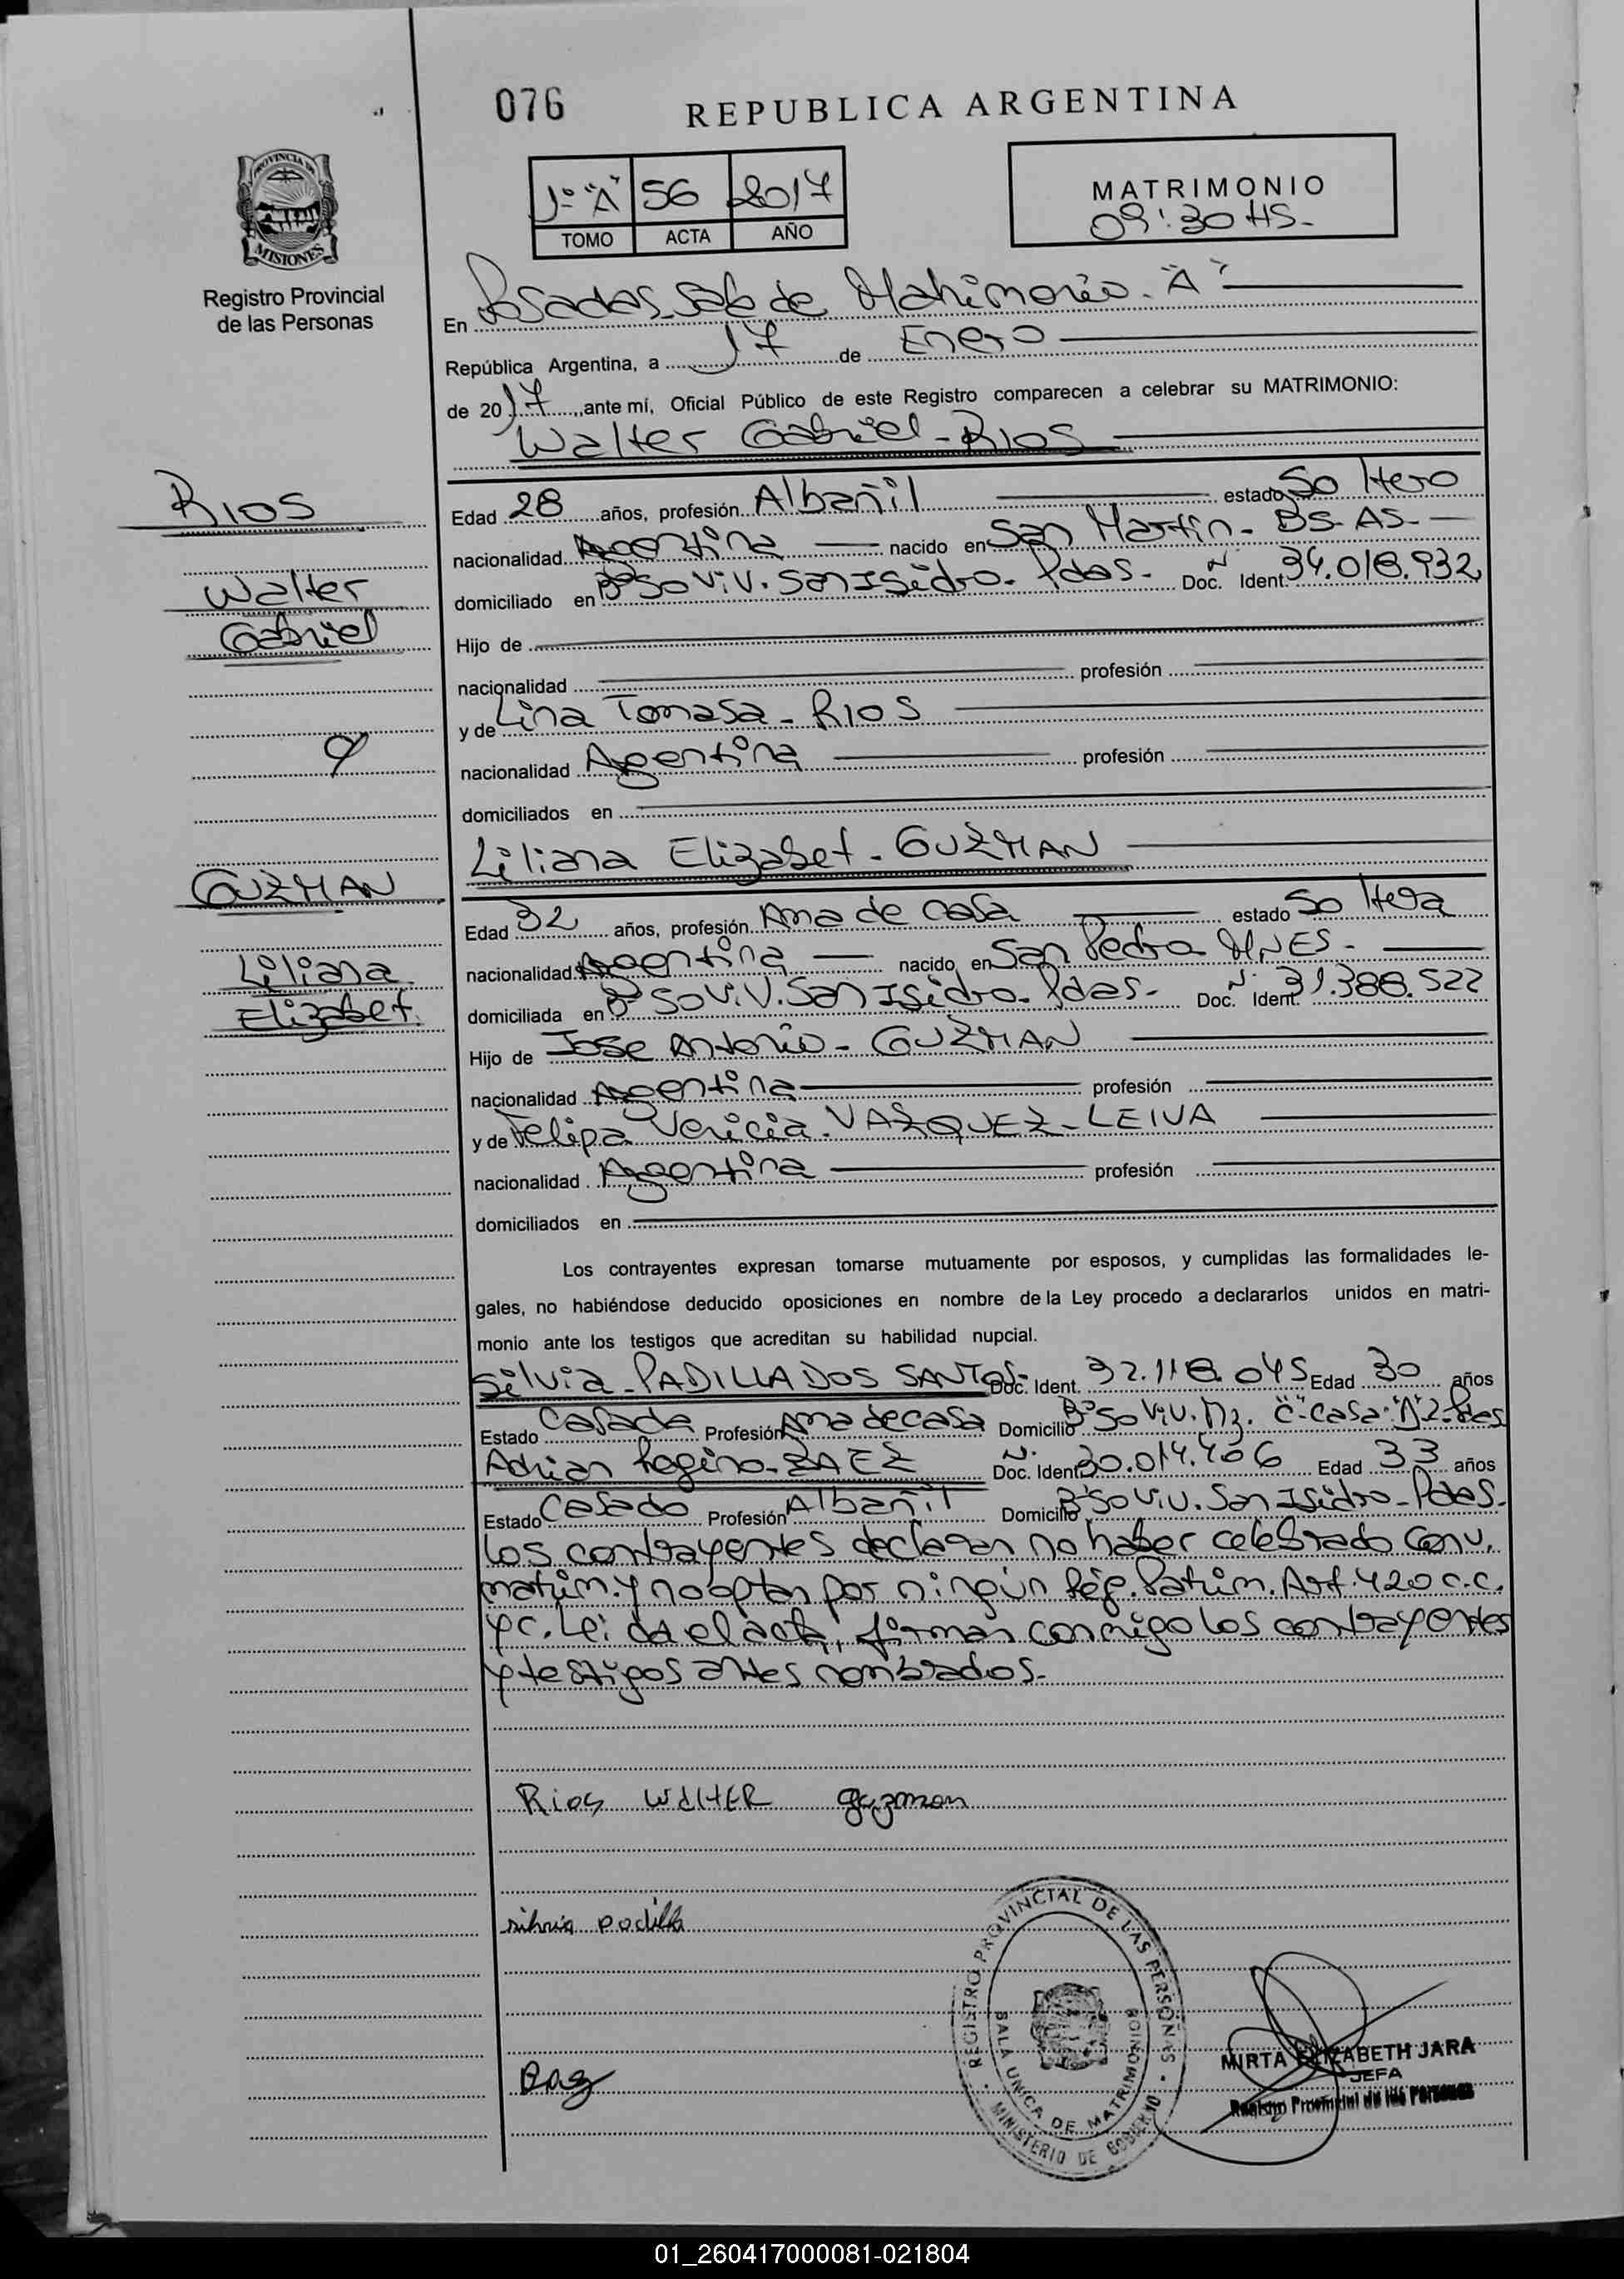 076
REPUBLICA ARGENTINA
PROVINCIA DE
MISIONES
Registro Provincial
de las Personas
1º "A" 56 2017
TOMO ACTA AÑO
MATRIMONIO
09:30 HS-
En Posadas Sala de Matrimonio "A"
República Argentina, a 17 de Enero
de 2017, ante mí, Oficial Público de este Registro comparecen a celebrar su MATRIMONIO:
Walter Gabriel - RIOS
RIOS
Walter
Gabriel
y
GUZMAN
Liliana
Elizabet.
Edad 28 años, profesión Albañil estado Soltero
nacionalidad Argentina nacido en San Martín - BS- AS-
domiciliado en Bº 50 Viv. San Isidro - Pdas- Doc. Ident. Nº 34.018.932
Hijo de
nacionalidad profesión
y de Lina Tomasa - RIOS
nacionalidad Argentina profesión
domiciliados en
Liliana Elizabet - GUZMAN
Edad 32 años, profesión Ama de Casa estado Soltera
nacionalidad Argentina nacido en San Pedro MNES-
domiciliada en Bº 50 Viv. San Isidro - Pdas- Doc. Ident. Nº 31.388.522
Hijo de Jose Antonio - GUZMAN
nacionalidad Argentina profesión
y de Felipa VAZQUEZ - LEIVA
nacionalidad Argentina profesión
domiciliados en
Los contrayentes expresan tomarse mutuamente por esposos, y cumplidas las formalidades le-
gales, no habiéndose deducido oposiciones en nombre de la Ley procedo a declararlos unidos en matri-
monio ante los testigos que acreditan su habilidad nupcial.
Silvia - PADILLA DOS SANTOS- Doc. Ident. 32.118.045 Edad 30 años
Estado Casada Profesión Ama de casa Domicilio Bº 50 Viv. Mz. "C" Casa "12" Pdas
Adrian Regino - BAEZ Doc. Ident. Nº 30.014.406 Edad 33 años
Estado Casado Profesión Albañil Domicilio Bº 50 Viv. San Isidro - Pdas-
Los contrayentes declaran no haber celebrado conv.
matrim. y no optan por ningún Rég. Patrim. Art. 420 C.C.
y C. Leída el acta, firman conmigo los contrayentes
y testigos antes nombrados-
Rios WALTER guzman
silvia padilla
REGISTRO PROVINCIAL DE LAS PERSONAS
SALA UNICA DE MATRIMONIOS
MINISTERIO DE GOBIERNO
MIRTA ELIZABETH JARA
JEFA
Registro Provincial de las Personas
01_260417000081-021804